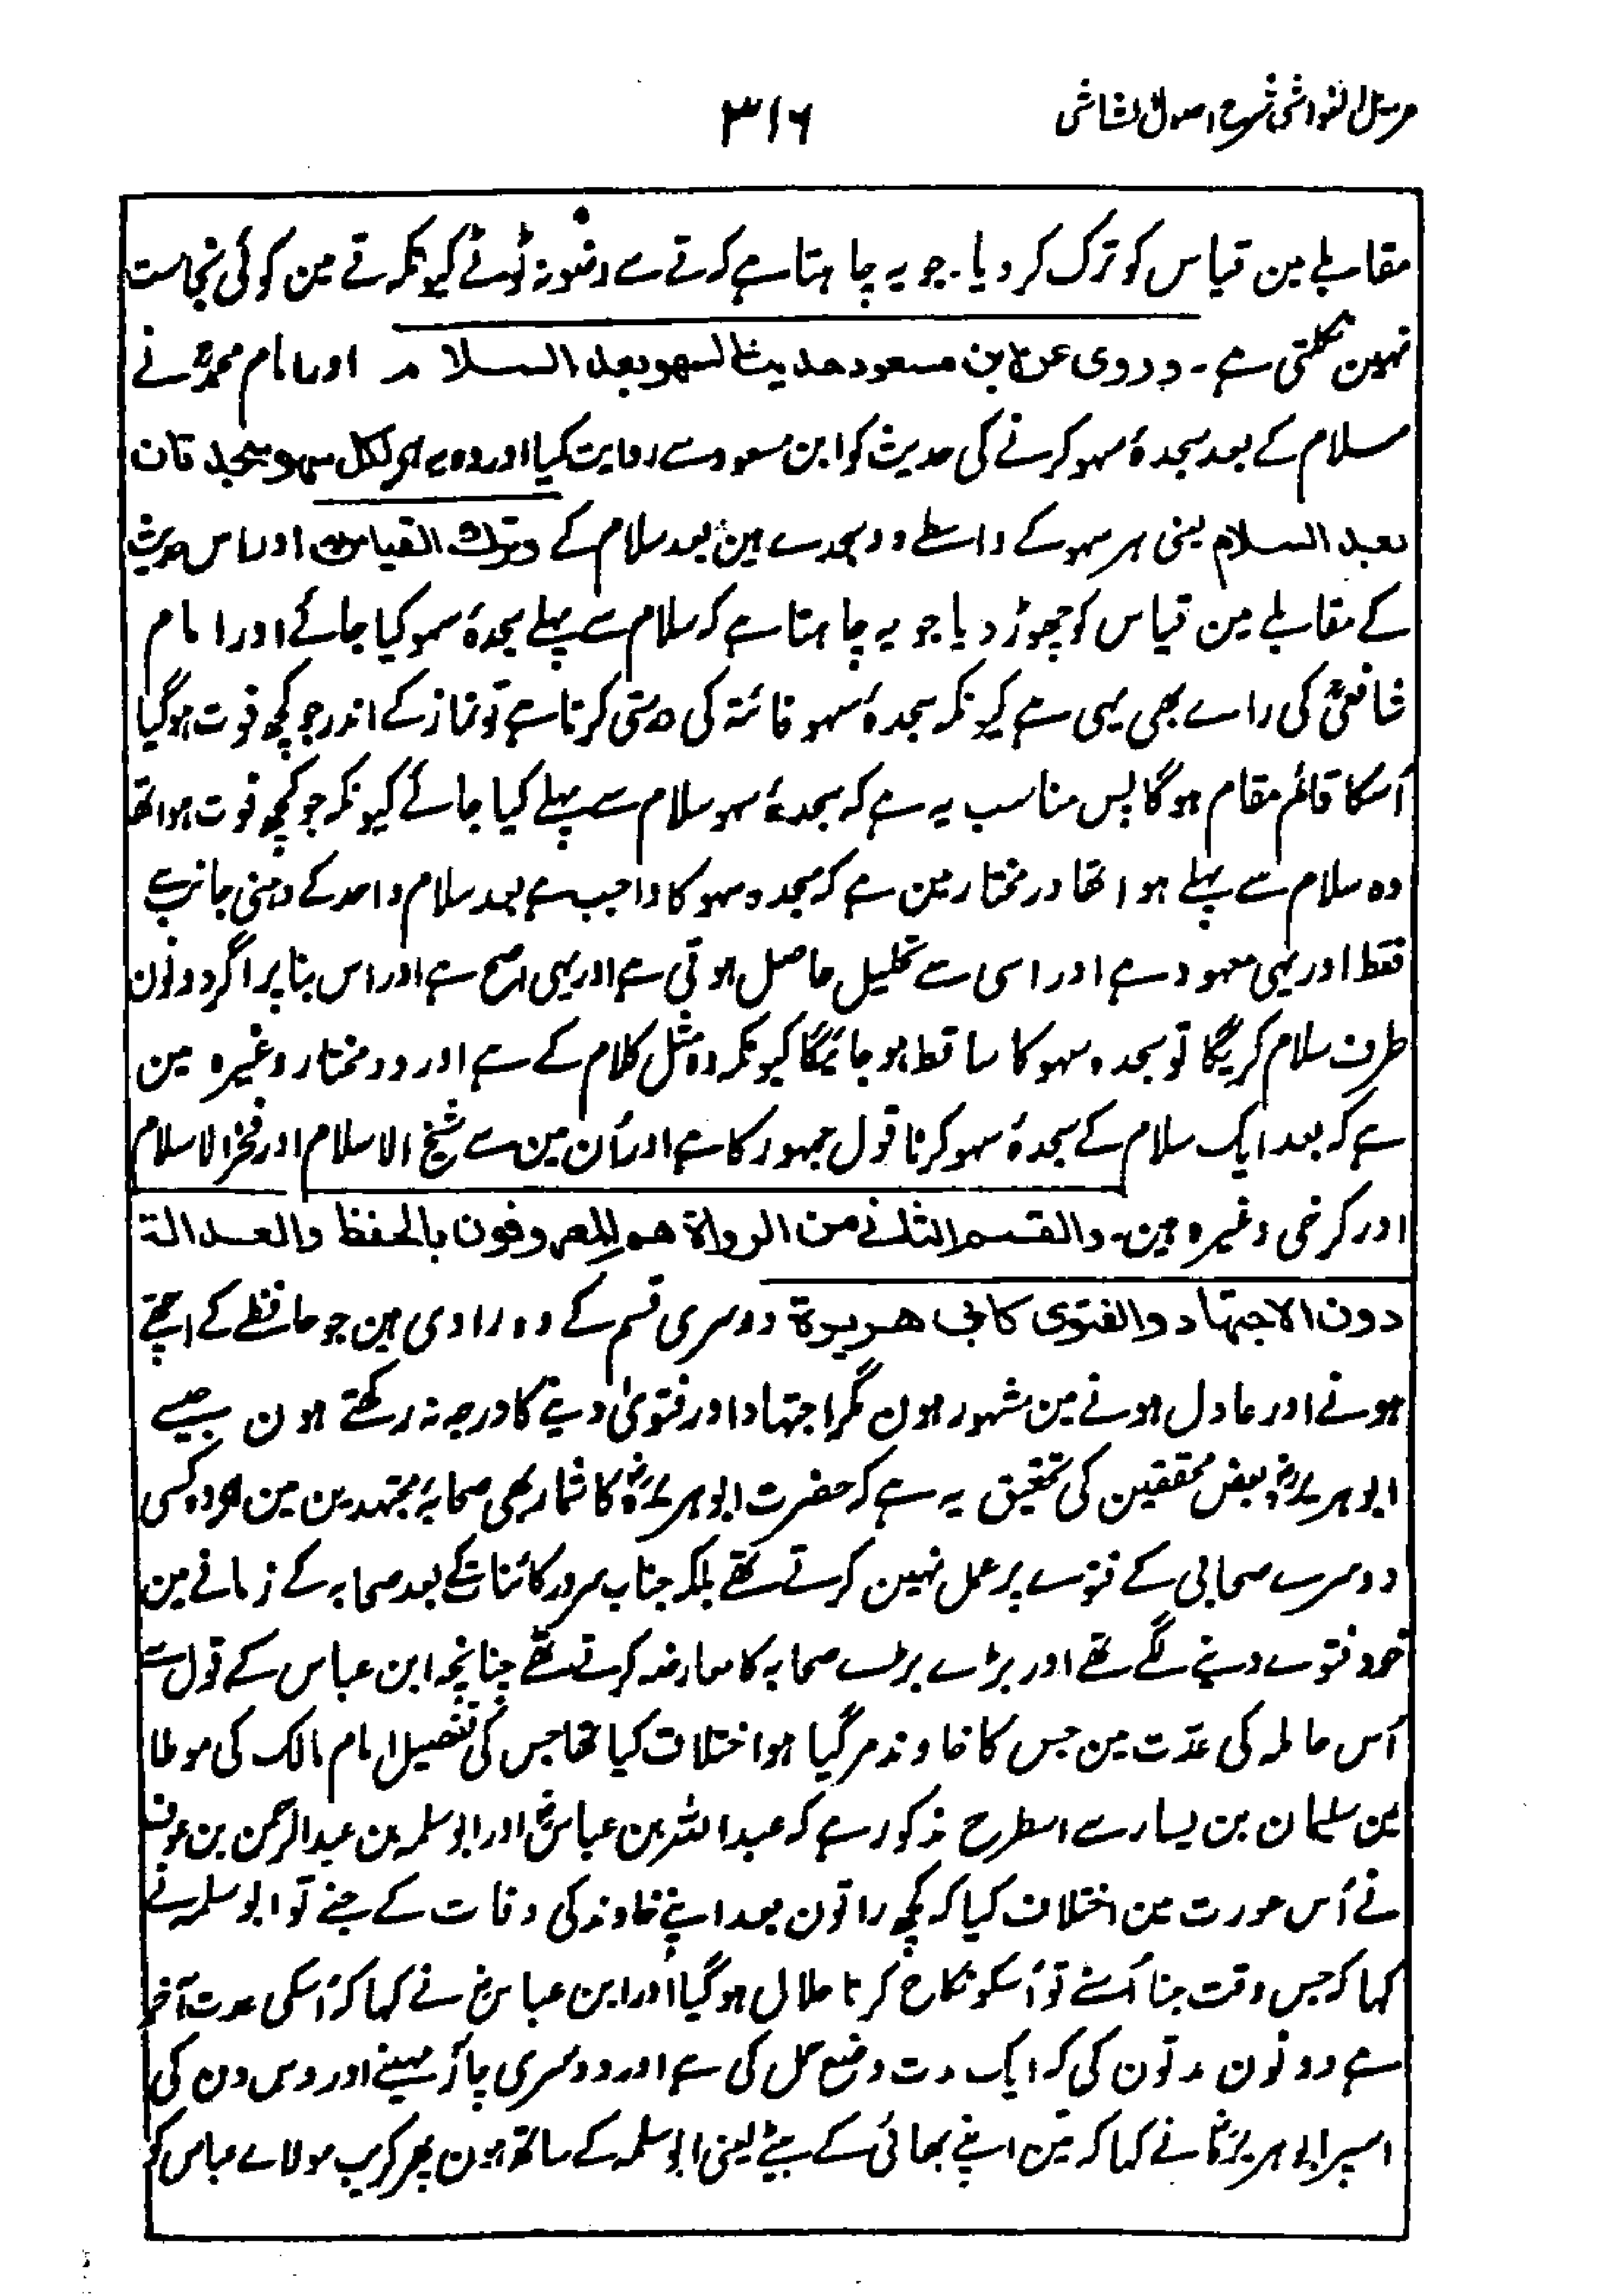 مزیل الغواشی شرح اصول الشاشی
۳۱۶
مقابلے مین قیاس کو ترک کر دیا۔ جو یہ چاہتا ہے کہ قے سے وضو نہ ٹوٹے کیونکہ قے مین کوئی نجاست
نہین نکلتی ہے۔ وروی عن ابن مسعود حدیث السہو بعد السلام اور امام محمدؒ نے
سلام کے بعد سجدۂ سہو کرنے کی حدیث کو ابن مسعود سے روایت کیا اور وہ یہ ہی لکل سہو سجدتان
بعد السلام یعنی ہر سہو کے واسطے دو سجدے ہین بعد سلام کے وترک القیاس اور اس حدیث
کے مقابلے مین قیاس کو چھوڑ دیا جو یہ چاہتا ہے کہ سلام سے پہلے سجدۂ سہو کیا جائے اور امام
شافعیؒ کی راے بھی یہی ہے کیونکہ سجدۂ سہو فائتہ کی درستی کرتا ہے تو نماز کے اندر جو کچھ فوت ہوگیا
اُسکا قائم مقام ہوگا پس مناسب یہ ہے کہ سجدۂ سہو سلام سے پہلے کیا جائے کیونکہ جو کچھ فوت ہوا تھا
وہ سلام سے پہلے ہوا تھا در مختار مین ہے کہ سجدہ سہو کا واجب ہے بعد سلام واحد کے دہنی جانب سے
فقط اور یہی معہود ہے اور اسی سے تحلیل حاصل ہوتی ہے اور یہی اصح ہے اور اس بنا پر اگر دونون
طرف سلام کریگا تو سجدہ سہو کا ساقط ہو جائیگا کیونکہ وہ مثل کلام کے ہے اور در مختار وغیرہ مین
ہے کہ بعد ایک سلام کے سجدۂ سہو کرنا قول جمہور کا ہے اور اُن مین سے شیخ الاسلام اور فخر الاسلام
اور کرخی وغیرہ ہین۔ والقسم الثانے من الرواۃ ھم المعروفون بالحفظ والعدالۃ
دون الاجتہاد والفتوی کابی ھریرۃ دوسری قسم کے وہ راوی ہین جو حافظے کے اچھے
ہونے اور عادل ہونے مین مشہور ہون مگر اجتہاد اور فتویٰ دینے کا درجہ نہ رکھتے ہون جیسے
ابو ہریرہؓ بعض محققین کی تحقیق یہ ہے کہ حضرت ابو ہریرہؓ کا شمار بھی صحابۂ مجتہدین مین ہے وہ کسی
دوسرے صحابی کے فتوے پر عمل نہین کرتے تھے بلکہ جناب سرور کائنات کے بعد صحابہ کے زمانے مین
خود فتوے دینے لگے تھے اور بڑے بڑے صحابہ کا معارضہ کرتے تھے چنانچہ ابن عباس کے قول سے
اُس حاملہ کی عدّت مین جس کا خاوند مر گیا ہو اختلاف کیا تھا جس کی تفصیل امام مالک کی موطا
مین سلیمان بن یسار سے اسطرح مذکور ہے کہ عبد اللہ بن عباسؓ اور ابو سلمہ بن عبد الرحمن بن عوف
نے اُس عورت مین اختلاف کیا کہ کچھ راتون بعد اپنے خاوند کی وفات کے جنے تو ابو سلمہ نے
کہا کہ جس وقت جنا اُسنے تو اُسکو نکاح کرنا حلال ہوگیا اور ابن عباسؓ نے کہا کہ اُسکی عدت آخر
ہے دونون مدتون کی کہ ایک مدت وضع حمل کی ہے اور دوسری چار مہینے اور دس دن کی
اسپر ابو ہریرہؓ نے کہا کہ مین اپنے بھائی کے بیٹے یعنی ابو سلمہ کے ساتھ ہون پھر کریب مولاے عباس کو